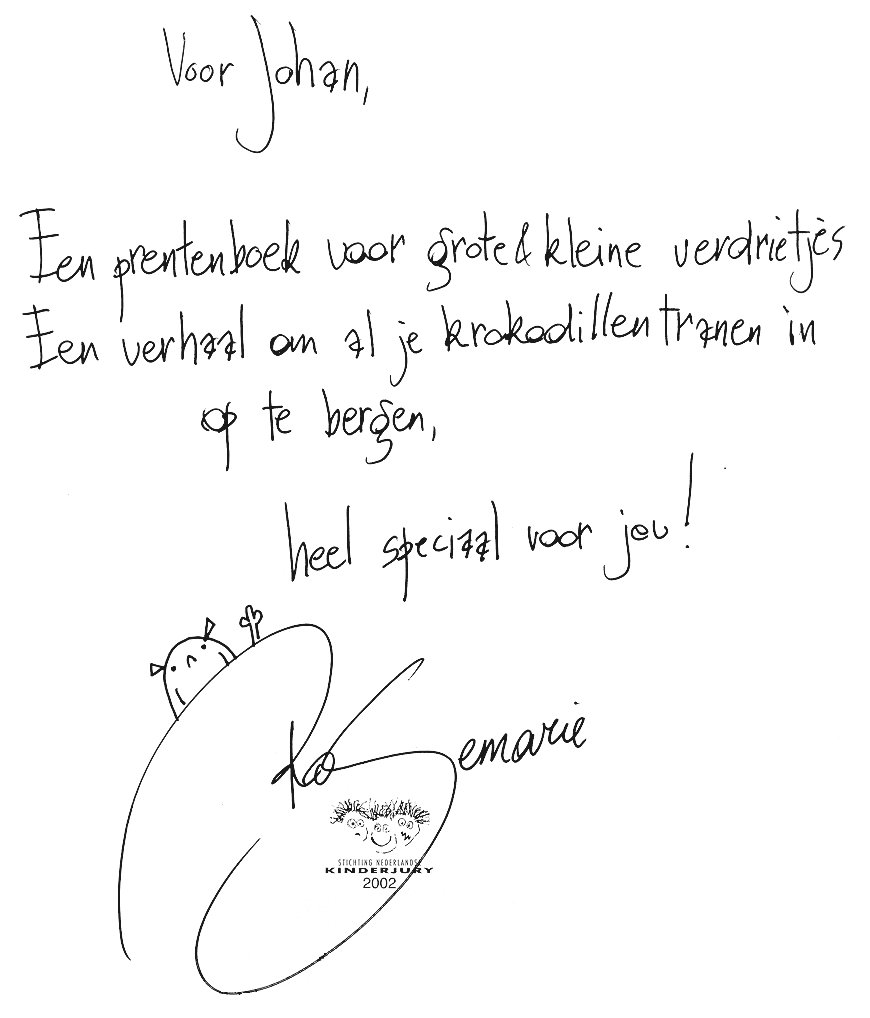 Voor Johan,
Een prentenboek voor grote & kleine verdrietjes
Een verhaal om al je krokodillentranen in
op te bergen,
heel speciaal voor jou!
Rosemarie
STICHTING NEDERLANDSE
KINDERJURY
2002